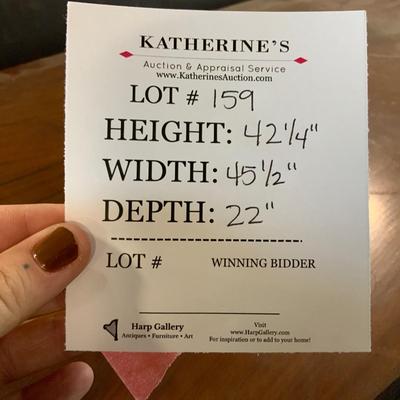 KATHERINE'S
Auction & Appraisal Service
www.KatherinesAuction.com
LOT # 159
HEIGHT: 42 1/4"
WIDTH: 45 1/2"
DEPTH: 22"
LOT # WINNING BIDDER
Harp Gallery
Antiques • Furniture • Art
Visit
www.HarpGallery.com
For inspiration or to add to your home!